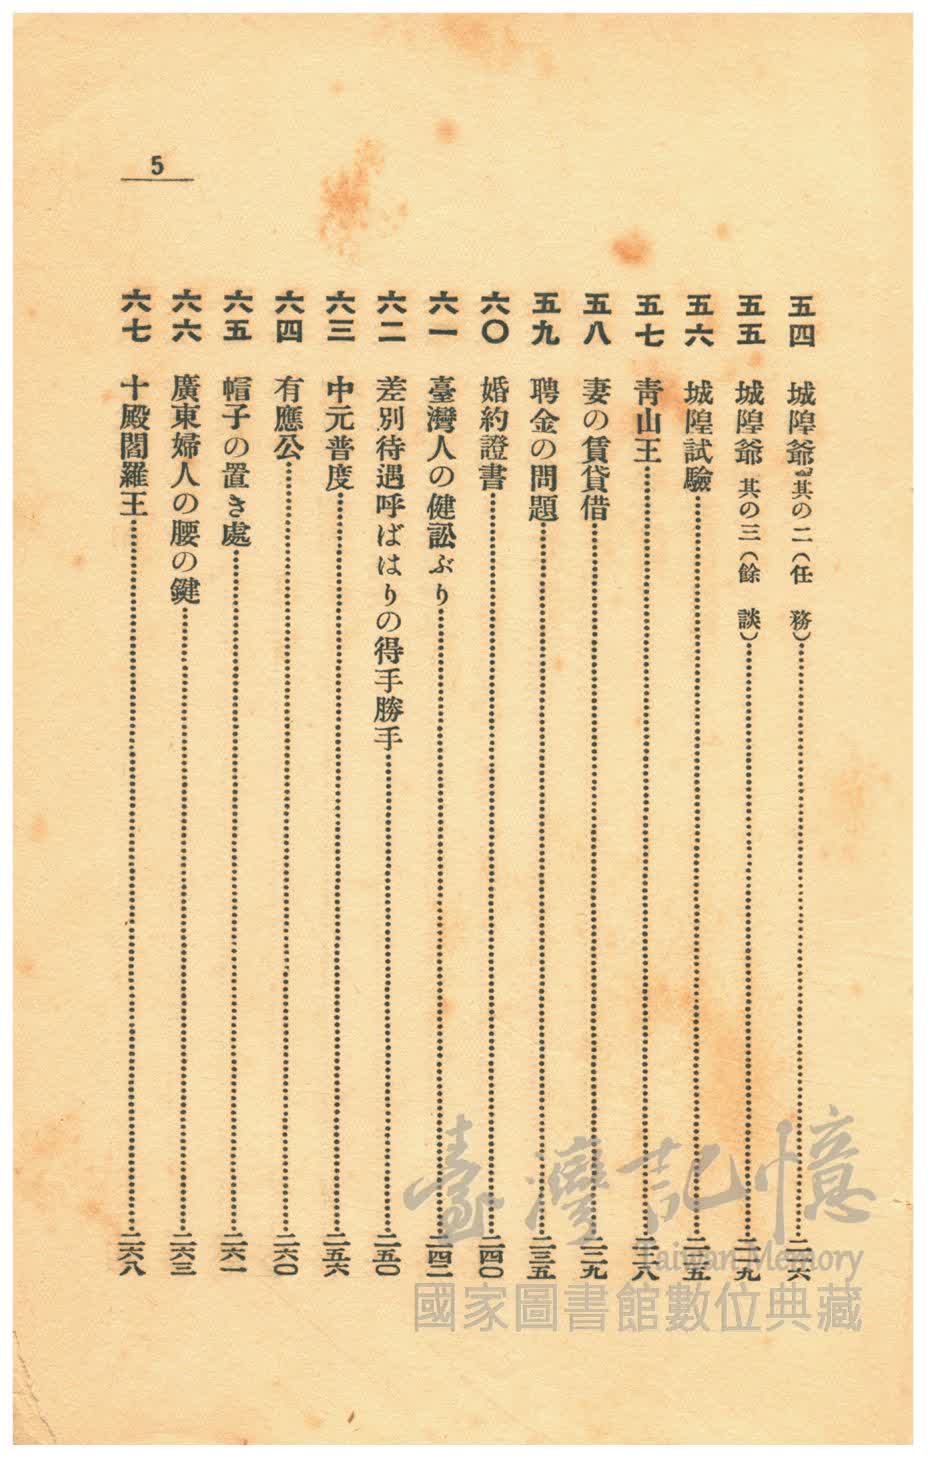 5
五四 城隍爺 其の二(任 務)……二一六
五五 城隍爺 其の三(餘 談)……二一九
五六 城隍試驗……二二五
五七 靑山王……二二八
五八 妻の賃貸借……二二九
五九 聘金の問題……二三五
六〇 婚約證書……二四〇
六一 臺灣人の健訟ぶり……二四二
六二 差別待遇呼ばはりの得手勝手……二五〇
六三 中元普度……二五六
六四 有應公……二六〇
六五 帽子の置き處……二六一
六六 廣東婦人の腰の鍵……二六三
六七 十殿閻羅王……二六八
臺灣記憶
Taiwan Memory
國家圖書館數位典藏